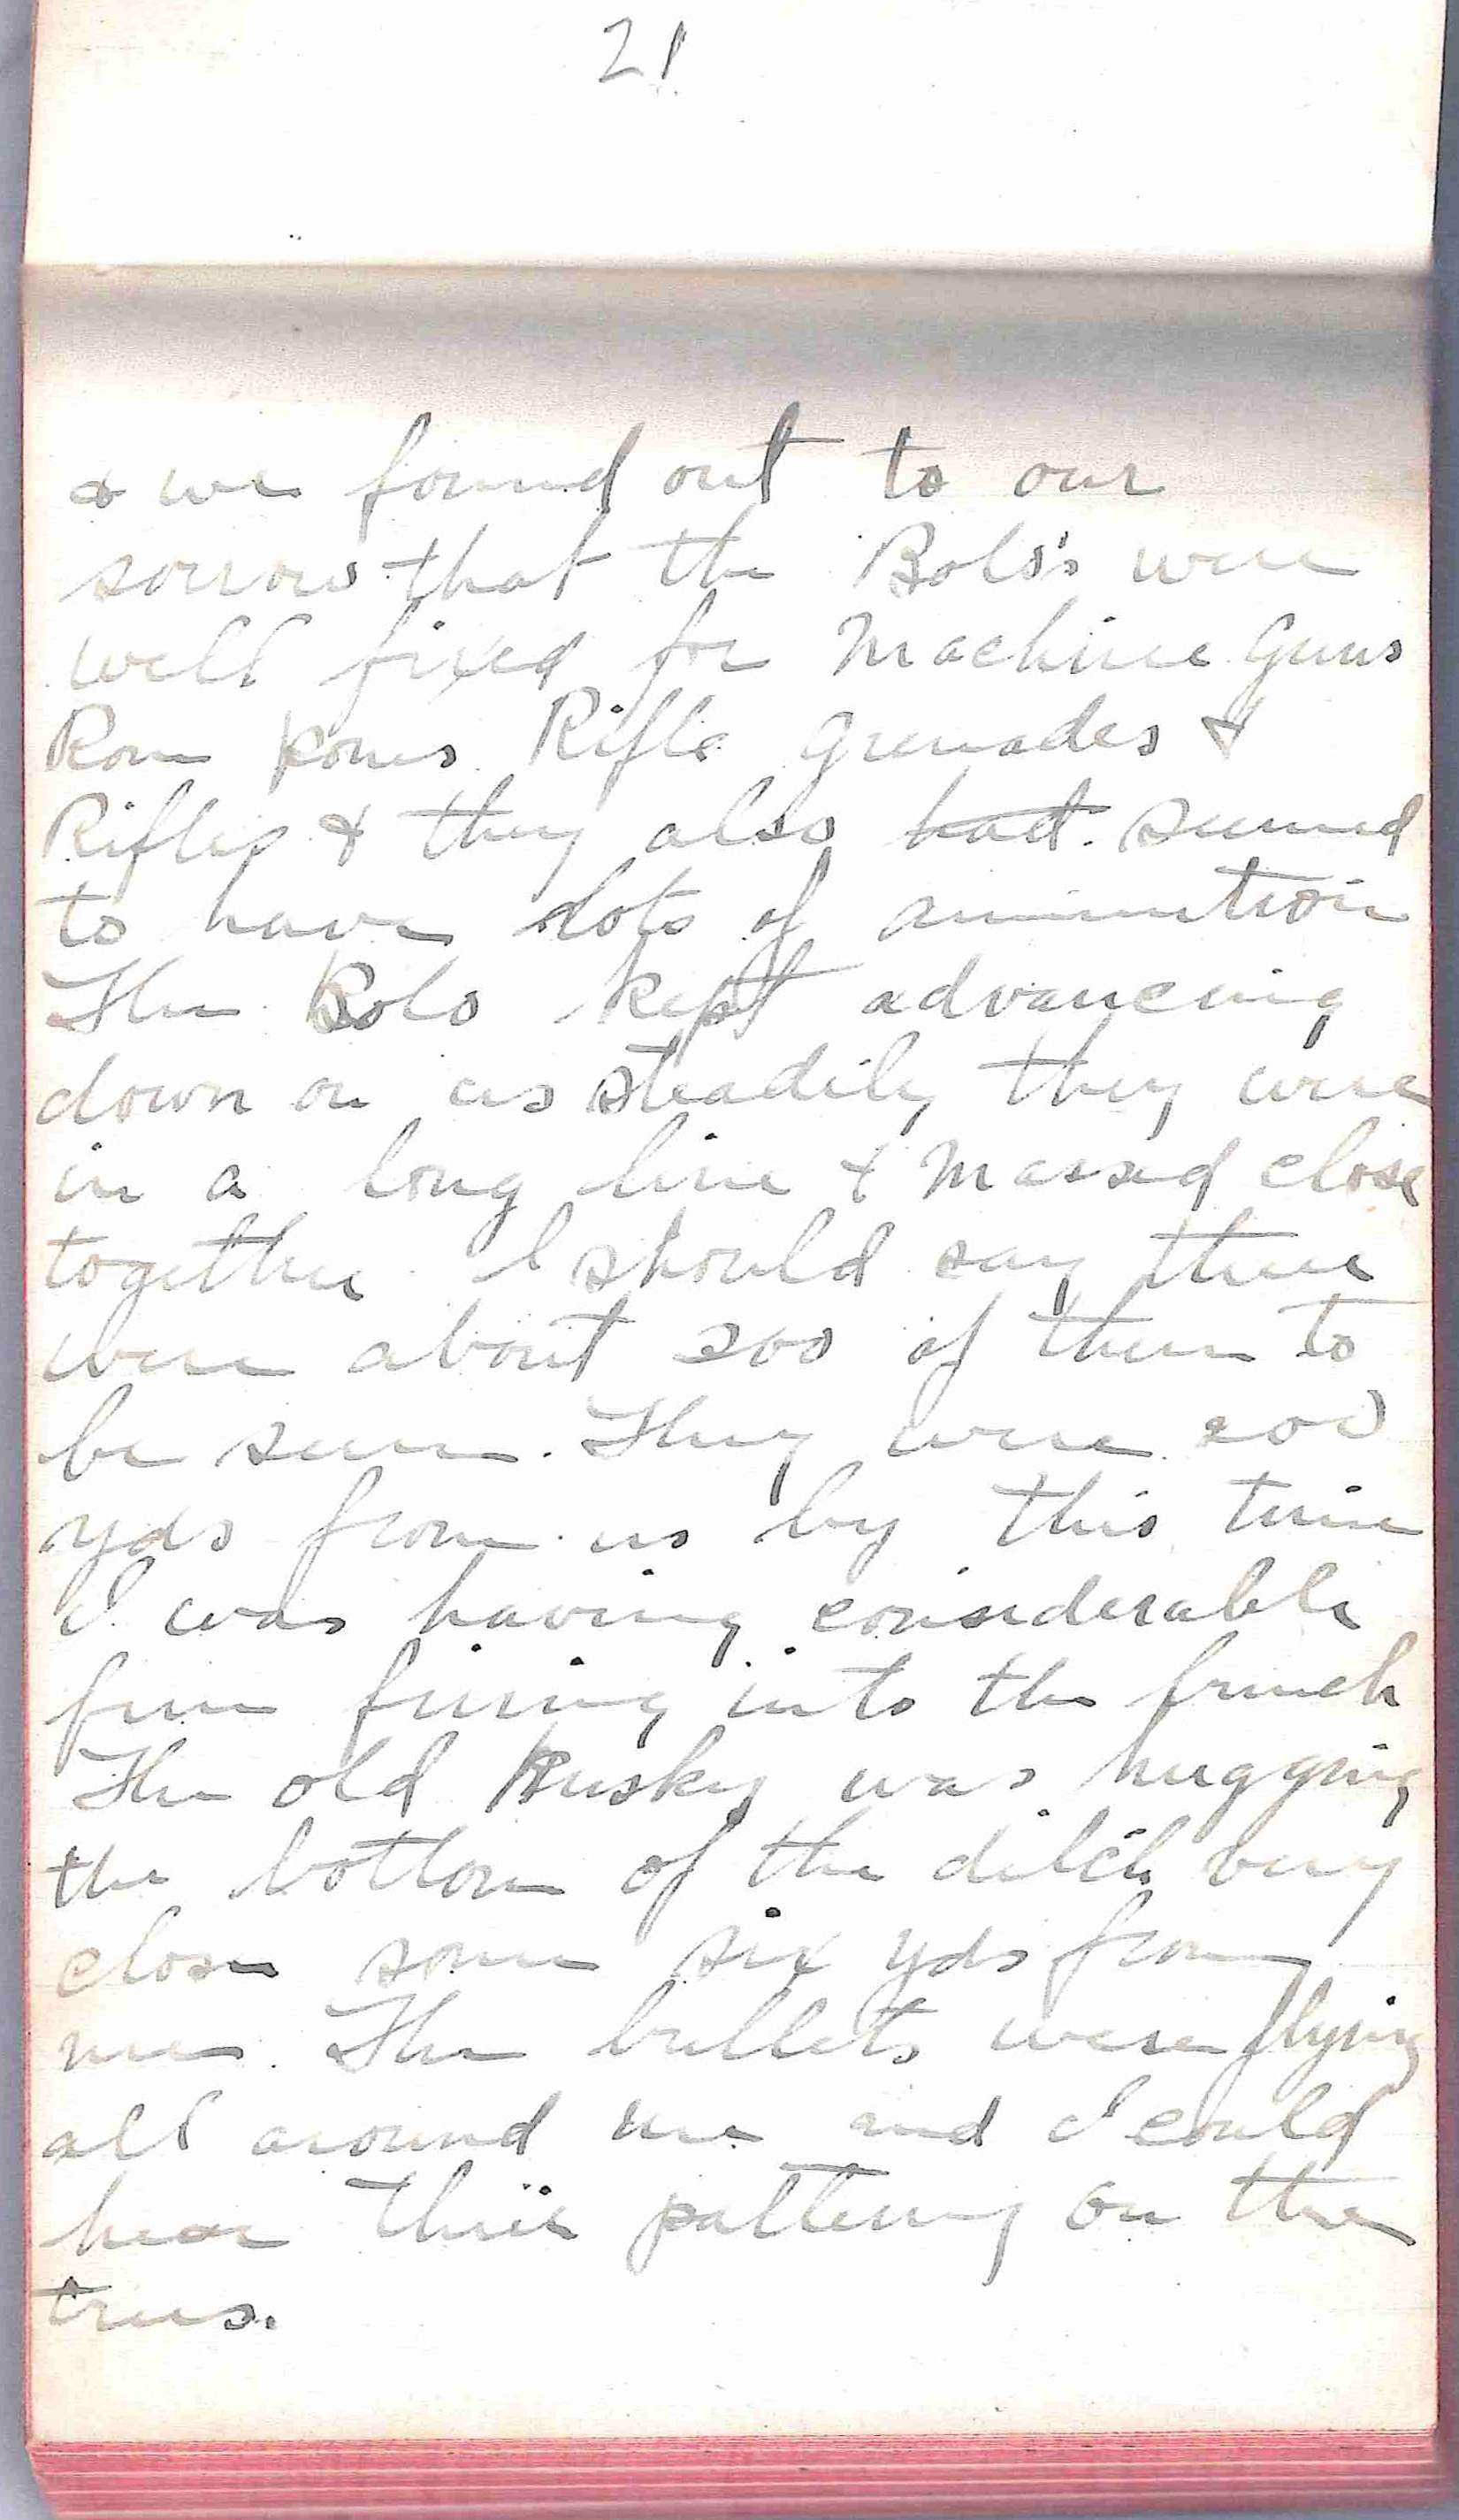 21
& we found out to our
sorrow that the Bolo's were
well fixed for Machine Guns
Pom poms Rifle Grenades &
Rifles & they also had seemed
to have lots of ammunition
The Bolo kept advancing
down on us steadily they were
in a long line & Massed close
together I should say there
were about 200 of them to
be seen. They were 200
yds from us by this time
I was having considerable
fun firing into the bunch
The old Rusky was hugging
the bottom of the ditch very
close some six yds from
me. The bullets were flying
all around me and I could
hear their pattering on the
trees.